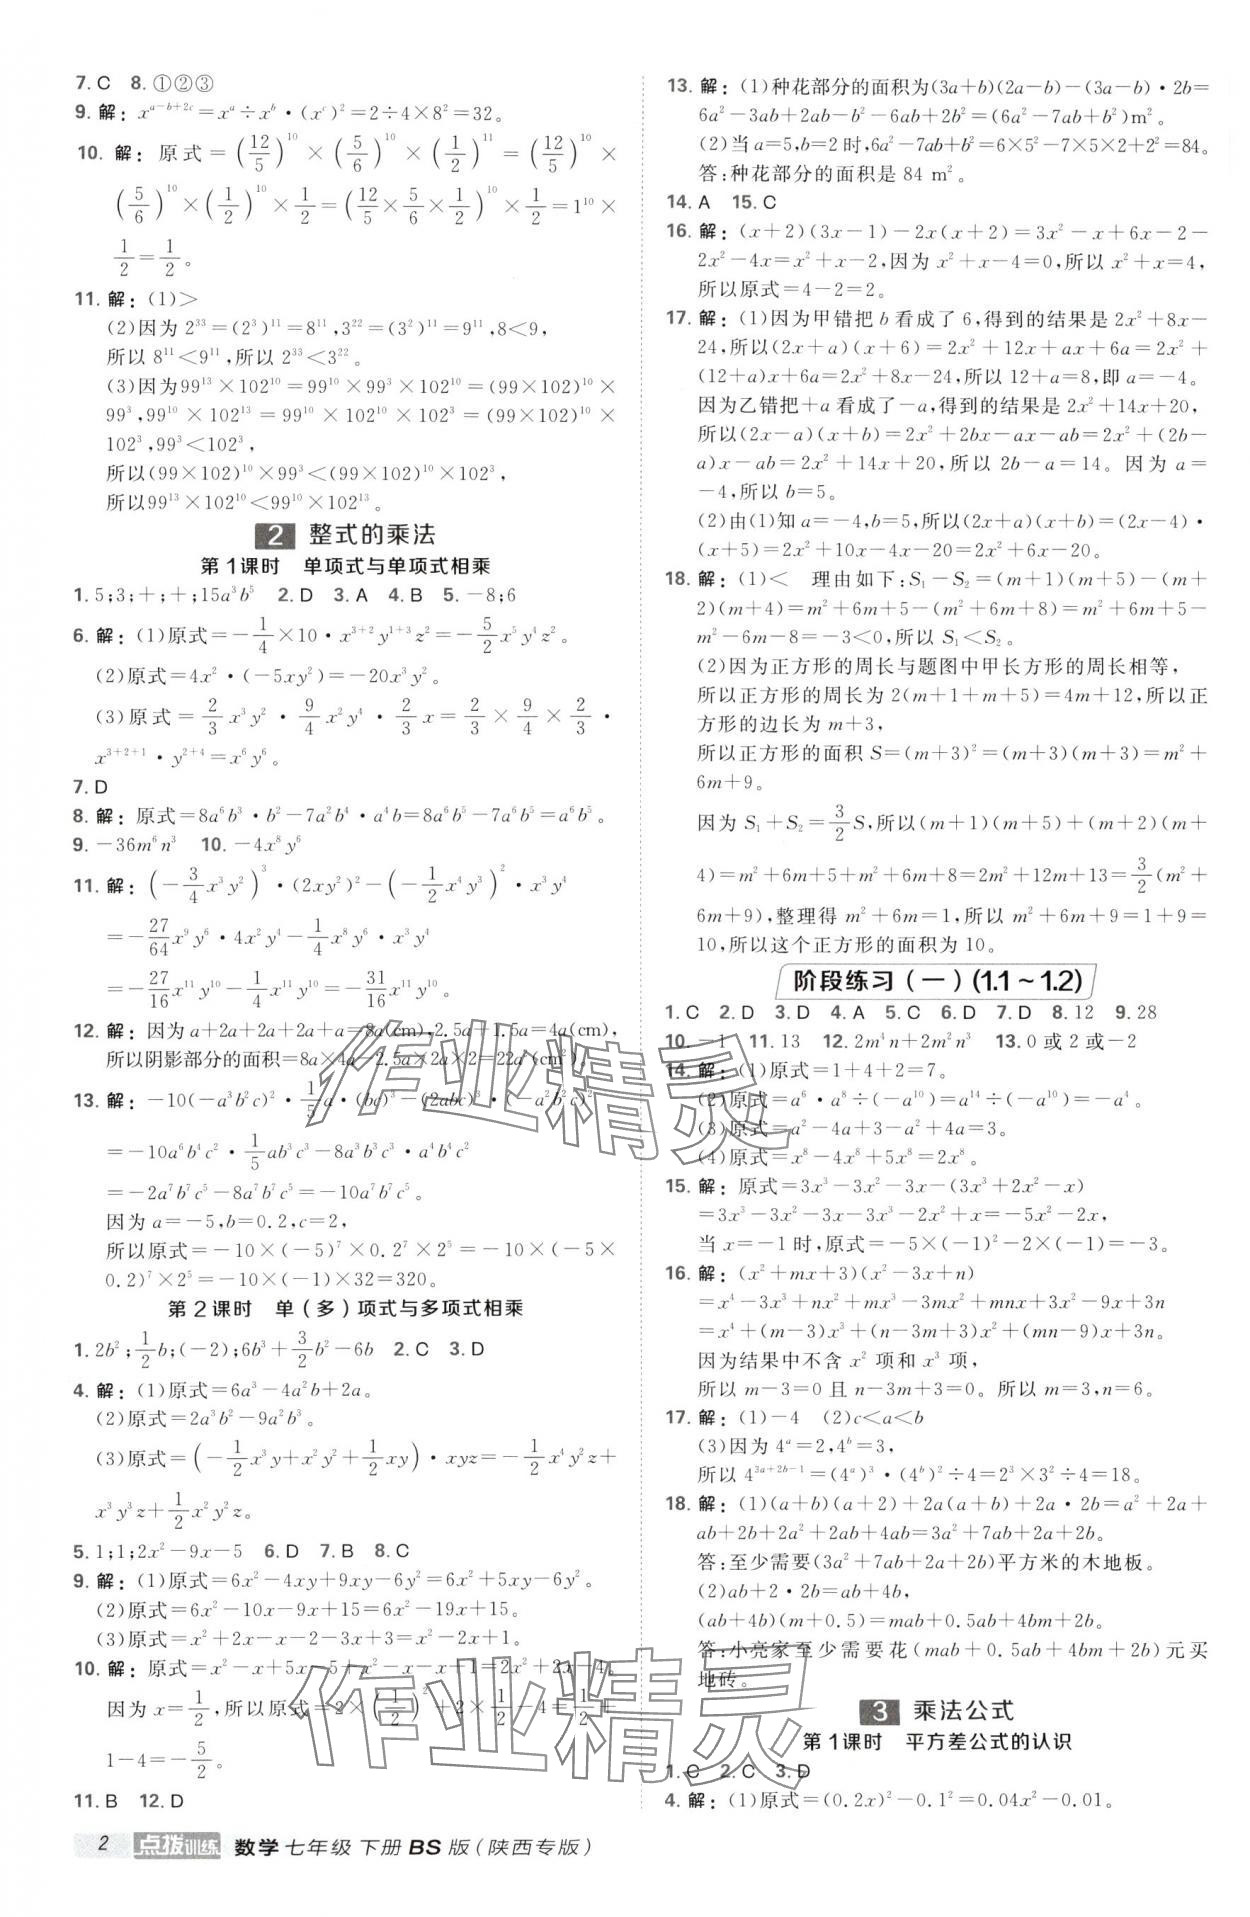 7. C　8. ①②③
9. 解：x^{a-b+2c}=x^a÷x^b·(x^c)^2=2÷4×8^2=32。
10. 解：原式=(12/5)^{10}×(5/6)^{10}×(1/2)^{11}=(12/5)^{10}×
(5/6)^{10}×(1/2)^{10}×1/2=(12/5×5/6×1/2)^{10}×1/2=1^{10}×
1/2=1/2。
11. 解：(1)>
(2)因为2^{33}=(2^3)^{11}=8^{11},3^{22}=(3^2)^{11}=9^{11},8<9,
所以8^{11}<9^{11},所以2^{33}<3^{22}。
(3)因为99^{13}×102^{10}=99^{10}×99^3×102^{10}=(99×102)^{10}×
99^3,99^{10}×102^{13}=99^{10}×102^{10}×102^3=(99×102)^{10}×
102^3,99^3<102^3,
所以(99×102)^{10}×99^3<(99×102)^{10}×102^3,
所以99^{13}×102^{10}<99^{10}×102^{13}。
2　整式的乘法
第1课时　单项式与单项式相乘
1. 5;3;+;+;15a^3b^5　2. D　3. A　4. B　5. -8;6
6. 解：(1)原式=-1/4×10·x^{3+2}y^{1+3}z^2=-5/2x^5y^4z^2。
(2)原式=4x^2·(-5xy^2)=-20x^3y^2。
(3)原式=2/3x^3y^2·9/4x^2y^4·2/3x=2/3×9/4×2/3·
x^{3+2+1}·y^{2+4}=x^6y^6。
7. D
8. 解：原式=8a^6b^3·b^2-7a^2b^4·a^4b=8a^6b^5-7a^6b^5=a^6b^5。
9. -36m^6n^3　10. -4x^8y^6
11. 解：(-3/4x^3y^2)^3·(2xy^2)^2-(-1/2x^4y^3)^2·x^3y^4
=-27/64x^9y^6·4x^2y^4-1/4x^8y^6·x^3y^4
=-27/16x^{11}y^{10}-1/4x^{11}y^{10}=-31/16x^{11}y^{10}。
12. 解：因为a+2a+2a+2a+a=8a(cm),2.5a+1.5a=4a(cm),
所以阴影部分的面积=8a×4a-2.5a×2a×2=22a^2(cm^2)。
13. 解：-10(-a^3b^2c)^2·1/5a·(bc)^3-(2abc)^3·(-a^2b^2c)^2
=-10a^6b^4c^2·1/5ab^3c^3-8a^3b^3c^3·a^4b^4c^2
=-2a^7b^7c^5-8a^7b^7c^5=-10a^7b^7c^5。
因为a=-5,b=0.2,c=2,
所以原式=-10×(-5)^7×0.2^7×2^5=-10×(-5×
0.2)^7×2^5=-10×(-1)×32=320。
第2课时　单(多)项式与多项式相乘
1. 2b^2;1/2b;(-2);6b^3+3/2b^2-6b　2. C　3. D
4. 解：(1)原式=6a^3-4a^2b+2a。
(2)原式=2a^3b^2-9a^2b^3。
(3)原式=(-1/2x^3y+x^2y^2+1/2xy)·xyz=-1/2x^4y^2z+
x^3y^3z+1/2x^2y^2z。
5. 1;1;2x^2-9x-5　6. D　7. B　8. C
9. 解：(1)原式=6x^2-4xy+9xy-6y^2=6x^2+5xy-6y^2。
(2)原式=6x^2-10x-9x+15=6x^2-19x+15。
(3)原式=x^2+2x-x-2-3x+3=x^2-2x+1。
10. 解：原式=x^2-x+5x-5+x^2-2x+1=2x^2+2x-4。
因为x=1/2,所以原式=2×(1/2)^2+2×1/2-4=1/2+
1-4=-5/2。
11. B　12. D
13. 解：(1)种花部分的面积为(3a+b)(2a-b)-(3a-b)·2b=
6a^2-3ab+2ab-b^2-6ab+2b^2=(6a^2-7ab+b^2)m^2。
(2)当a=5,b=2时,6a^2-7ab+b^2=6×5^2-7×5×2+2^2=84。
答:种花部分的面积是84 m^2。
14. A　15. C
16. 解：(x+2)(3x-1)-2x(x+2)=3x^2-x+6x-2-
2x^2-4x=x^2+x-2,因为x^2+x-4=0,所以x^2+x=4,
所以原式=4-2=2。
17. 解：(1)因为甲错把b看成了6,得到的结果是2x^2+8x-
24,所以(2x+a)(x+6)=2x^2+12x+ax+6a=2x^2+
(12+a)x+6a=2x^2+8x-24,所以12+a=8,即a=-4。
因为乙错把+a看成了-a,得到的结果是2x^2+14x+20,
所以(2x-a)(x+b)=2x^2+2bx-ax-ab=2x^2+(2b-
a)x-ab=2x^2+14x+20,所以2b-a=14。因为a=
-4,所以b=5。
(2)由(1)知a=-4,b=5,所以(2x+a)(x+b)=(2x-4)·
(x+5)=2x^2+10x-4x-20=2x^2+6x-20。
18. 解：(1)<　理由如下:S_1-S_2=(m+1)(m+5)-(m+
2)(m+4)=m^2+6m+5-(m^2+6m+8)=m^2+6m+5-
m^2-6m-8=-3<0,所以S_1<S_2。
(2)因为正方形的周长与题图中甲长方形的周长相等,
所以正方形的周长为2(m+1+m+5)=4m+12,所以正
方形的边长为m+3,
所以正方形的面积S=(m+3)^2=(m+3)(m+3)=m^2+
6m+9。
因为S_1+S_2=3/2S,所以(m+1)(m+5)+(m+2)(m+
4)=m^2+6m+5+m^2+6m+8=2m^2+12m+13=3/2(m^2+
6m+9),整理得m^2+6m=1,所以m^2+6m+9=1+9=
10,所以这个正方形的面积为10。
阶段练习(一)(1.1~1.2)
1. C　2. D　3. D　4. A　5. C　6. D　7. D　8. 12　9. 28
10. -1　11. 13　12. 2m^4n+2m^2n^3　13. 0或2或-2
14. 解：(1)原式=1+4+2=7。
(2)原式=a^6·a^8÷(-a^{10})=a^{14}÷(-a^{10})=-a^4。
(3)原式=a^2-4a+3-a^2+4a=3。
(4)原式=x^8-4x^8+5x^8=2x^8。
15. 解：原式=3x^3-3x^2-3x-(3x^3+2x^2-x)
=3x^3-3x^2-3x-3x^3-2x^2+x=-5x^2-2x,
当x=-1时,原式=-5×(-1)^2-2×(-1)=-3。
16. 解：(x^2+mx+3)(x^2-3x+n)
=x^4-3x^3+nx^2+mx^3-3mx^2+mnx+3x^2-9x+3n
=x^4+(m-3)x^3+(n-3m+3)x^2+(mn-9)x+3n。
因为结果中不含x^2项和x^3项,
所以m-3=0且n-3m+3=0,所以m=3,n=6。
17. 解：(1)-4　(2)c<a<b
(3)因为4^a=2,4^b=3,
所以4^{3a+2b-1}=(4^a)^3·(4^b)^2÷4=2^3×3^2÷4=18。
18. 解：(1)(a+b)(a+2)+2a(a+b)+2a·2b=a^2+2a+
ab+2b+2a^2+2ab+4ab=3a^2+7ab+2a+2b。
答:至少需要(3a^2+7ab+2a+2b)平方米的木地板。
(2)ab+2·2b=ab+4b,
(ab+4b)(m+0.5)=mab+0.5ab+4bm+2b。
答:小亮家至少需要花(mab+0.5ab+4bm+2b)元买
地砖。
3　乘法公式
第1课时　平方差公式的认识
1. C　2. C　3. D
4. 解：(1)原式=(0.2x)^2-0.1^2=0.04x^2-0.01。
2　点拨训练　数学 七年级 下册 BS 版(陕西专版)
作业精灵
作业精灵